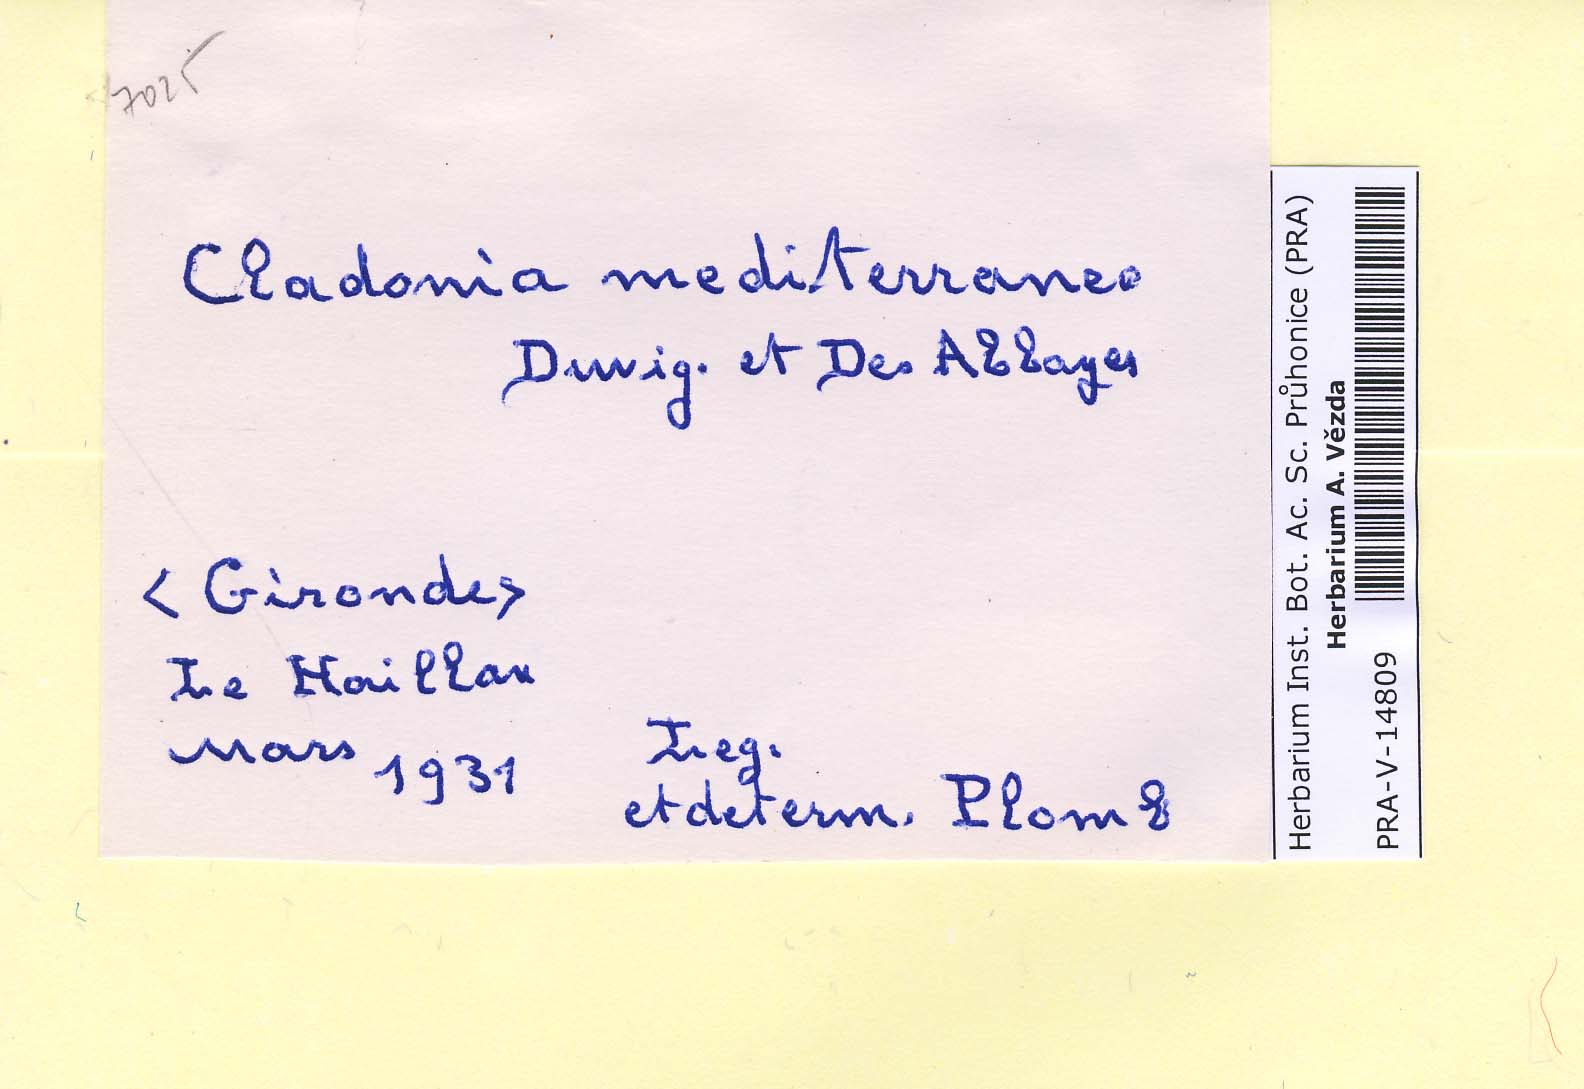 7025
Cladonia mediterranea
Duvig. et Des Abbayes
< Gironde>
Le Haillan
Mars 1931
Leg.
et determ. Plomb
Herbarium Inst. Bot. Ac. Sc. Průhonice (PRA)
Herbarium A. Vězda
PRA-V-14809